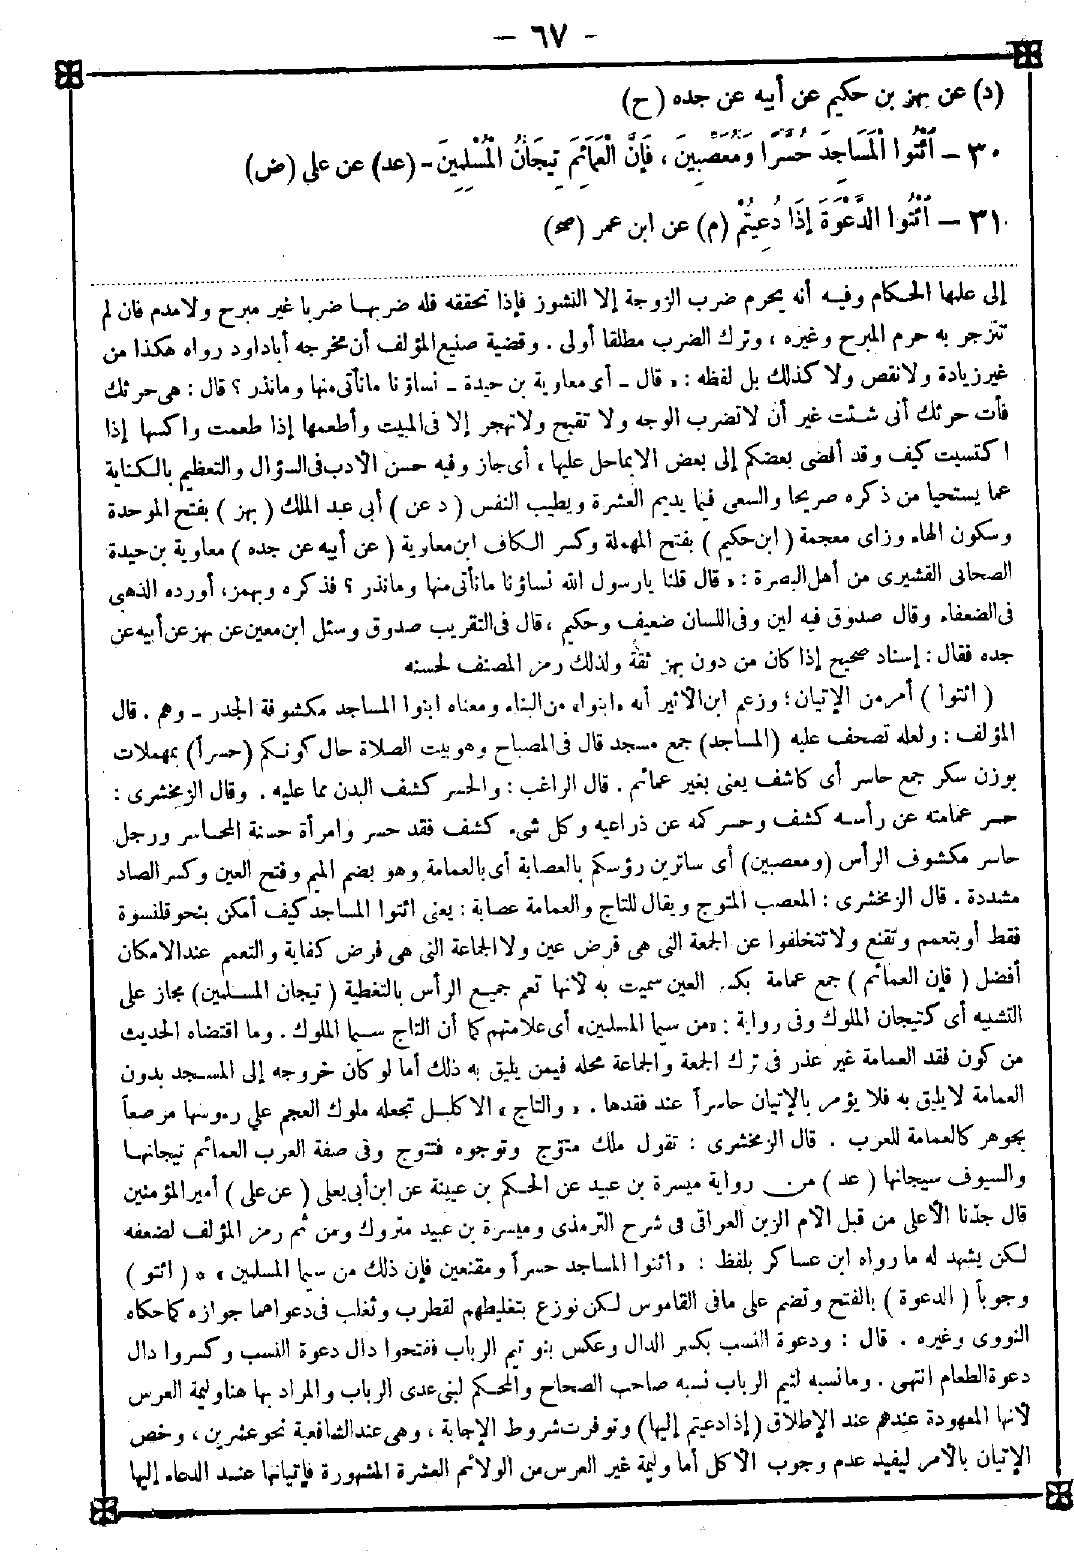 - ٦٧ -
(د) عن بهز بن حكيم عن أبيه عن جده (ح)
٣٠ - ٱئْتُوا الْمَسَاجِدَ حُسَّرًا وَمُعَصَّبِينَ ، فَإِنَّ الْعَمَائِمَ تِيجَانُ الْمُسْلِمِينَ - (عد) عن على (ض)
٣١ - ٱئْتُوا الدَّعْوَةَ إِذَا دُعِيتُمْ (م) عن ابن عمر (صح)
إلى عليها الحكام وفيه أنه يحرم ضرب الزوجة إلا النشوز فإذا تحققه فله ضربها ضربا غير مبرح ولا مدم فان لم
تنزجر به حرم المبرح وغيره ، وترك الضرب مطلقا أولى . وقضية صنيع المؤلف أن مخرجه أباداود رواه هكذا من
غير زيادة ولا نقص ولا كذلك بل لفظه : « قال - أى معاوية بن حيدة - نساؤنا مانأتى منها ومانذر ؟ قال : هى حرثك
فأت حرثك أنى شئت غير أن لاتضرب الوجه ولا تقبح ولاتهجر إلا فى المبيت وأطعمها إذا طعمت واكسها إذا
اكتسيت كيف وقد أفضى بعضكم إلى بعض الابماحل عليها ، أى جاز وفيه حسن الأدب فى السؤال والتعظيم بالكناية
عما يستحيا من ذكره صريحا والسعى فيما يديم العشرة ويطيب النفس ( د عن ) أبى عبد الملك ( بهز ) بفتح الموحدة
وسكون الهاء وزاى معجمة ( ابن حكيم ) بفتح المهملة وكسر الكاف ابن معاوية ( عن أبيه عن جده ) معاوية بن حيدة
الصحابى القشيرى من أهل البصرة : « قال قلنا يارسول الله نساؤنا مانأتى منها ومانذر ؟ فذكره وبهز، أورده الذهبى
فى الضعفاء وقال صدوق فيه لين وفى اللسان ضعيف وحكيم ، قال فى التقريب صدوق وسئل ابن معين عن بهز عن أبيه عن
جده فقال : إسناد صحيح إذا كان من دون بهز ثقة ولذلك رمز المصنف لحسنه
( ائتوا ) أمر من الإتيان ؛ وزعم ابن الأثير أنه «ابنوا» من البناء ومعناه ابنوا المساجد مكشوفة الجدر - وهم . قال
المؤلف : ولعله تصحف عليه (المساجد) جمع مسجد قال فى المصباح وهو بيت الصلاة حال كونكم (حسرا) بمهملات
بوزن سكر جمع حاسر أى كاشف يعنى بغير عمائم . قال الراغب : والحسر كشف البدن مما عليه . وقال الزمخشرى :
حسر عمامته عن رأسه كشف وحسر كمه عن ذراعيه وكل شىء كشف فقد حسر وامرأة حسنة المحاسر ورجل
حاسر مكشوف الرأس (ومعصبين) أى ساترين رؤسكم بالعصابة أى بالعمامة وهو بضم الميم وفتح العين وكسر الصاد
مشددة . قال الزمخشرى : المعصب المتوج ويقال للتاج والعمامة عصابة : يعنى ائتوا المساجد كيف أمكن بنحو قلنسوة
فقط أو بتعمم وتقنع ولاتتخلفوا عن الجمعة التى هى فرض عين ولا الجماعة التى هى فرض كفاية والتعمم عند الامكان
أفضل ( فإن العمائم ) جمع عمامة بكسر العين سميت به لأنها تعم جميع الرأس بالتغطية ( تيجان المسلمين) مجاز على
التشبيه أى كتيجان الملوك وفى رواية : «من سيما المسلمين» أى علامتهم كما أن التاج سيما الملوك . وما اقتضاه الحديث
من كون فقد العمامة غير عذر فى ترك الجمعة والجماعة محله فيمن يليق به ذلك أما لو كان خروجه إلى المسجد بدون
العمامة لا يليق به فلا يؤمر بالإتيان حاسراً عند فقدها . « والتاج » الاكليل تجعله ملوك العجم على رءوسها مرصعاً
بجوهر كالعمامة للعرب . قال الزمخشرى : تقول ملك متوّج وتوجوه فتتوج وفى صفة العرب العمائم تيجانها
والسيوف سيجانها ( عد ) من رواية ميسرة بن عبيد عن الحكم بن عيينة عن ابن أبى يعلى ( عن على ) أمير المؤمنين
قال جدّنا الأعلى من قبل الأم الزين العراقى فى شرح الترمذى وميسرة بن عبيد متروك ومن ثم رمز المؤلف لضعفه
لكن يشهد له ما رواه ابن عساكر بلفظ : « ائتوا المساجد حسراً ومقنعين فإن ذلك من سيما المسلمين » « ( ائتو )
وجوباً ( الدعوة ) بالفتح وتضم على مافى القاموس لكن نوزع بتغليطهم لقطرب وثغلب فى دعواهما جوازه كما حكاه
النووى وغيره . قال : ودعوة النسب بكسر الدال وعكس بنو تيم الرباب ففتحوا دال دعوة النسب وكسروا دال
دعوة الطعام انتهى . ومانسبه لتيم الرباب نسبه صاحب الصحاح والمحكم لبنى عدى الرباب والمراد بها هنا وليمة العرس
لأنها المعهودة عندهم عند الإطلاق (إذا دعيتم إليها) وتوفرت شروط الإجابة ، وهى عند الشافعية نحو عشرين ، وخص
الإتيان بالأمر ليفيد عدم وجوب الأكل أما وليمة غير العرس من الولائم العشرة المشهورة فإتيانها عند الدعاء إليها